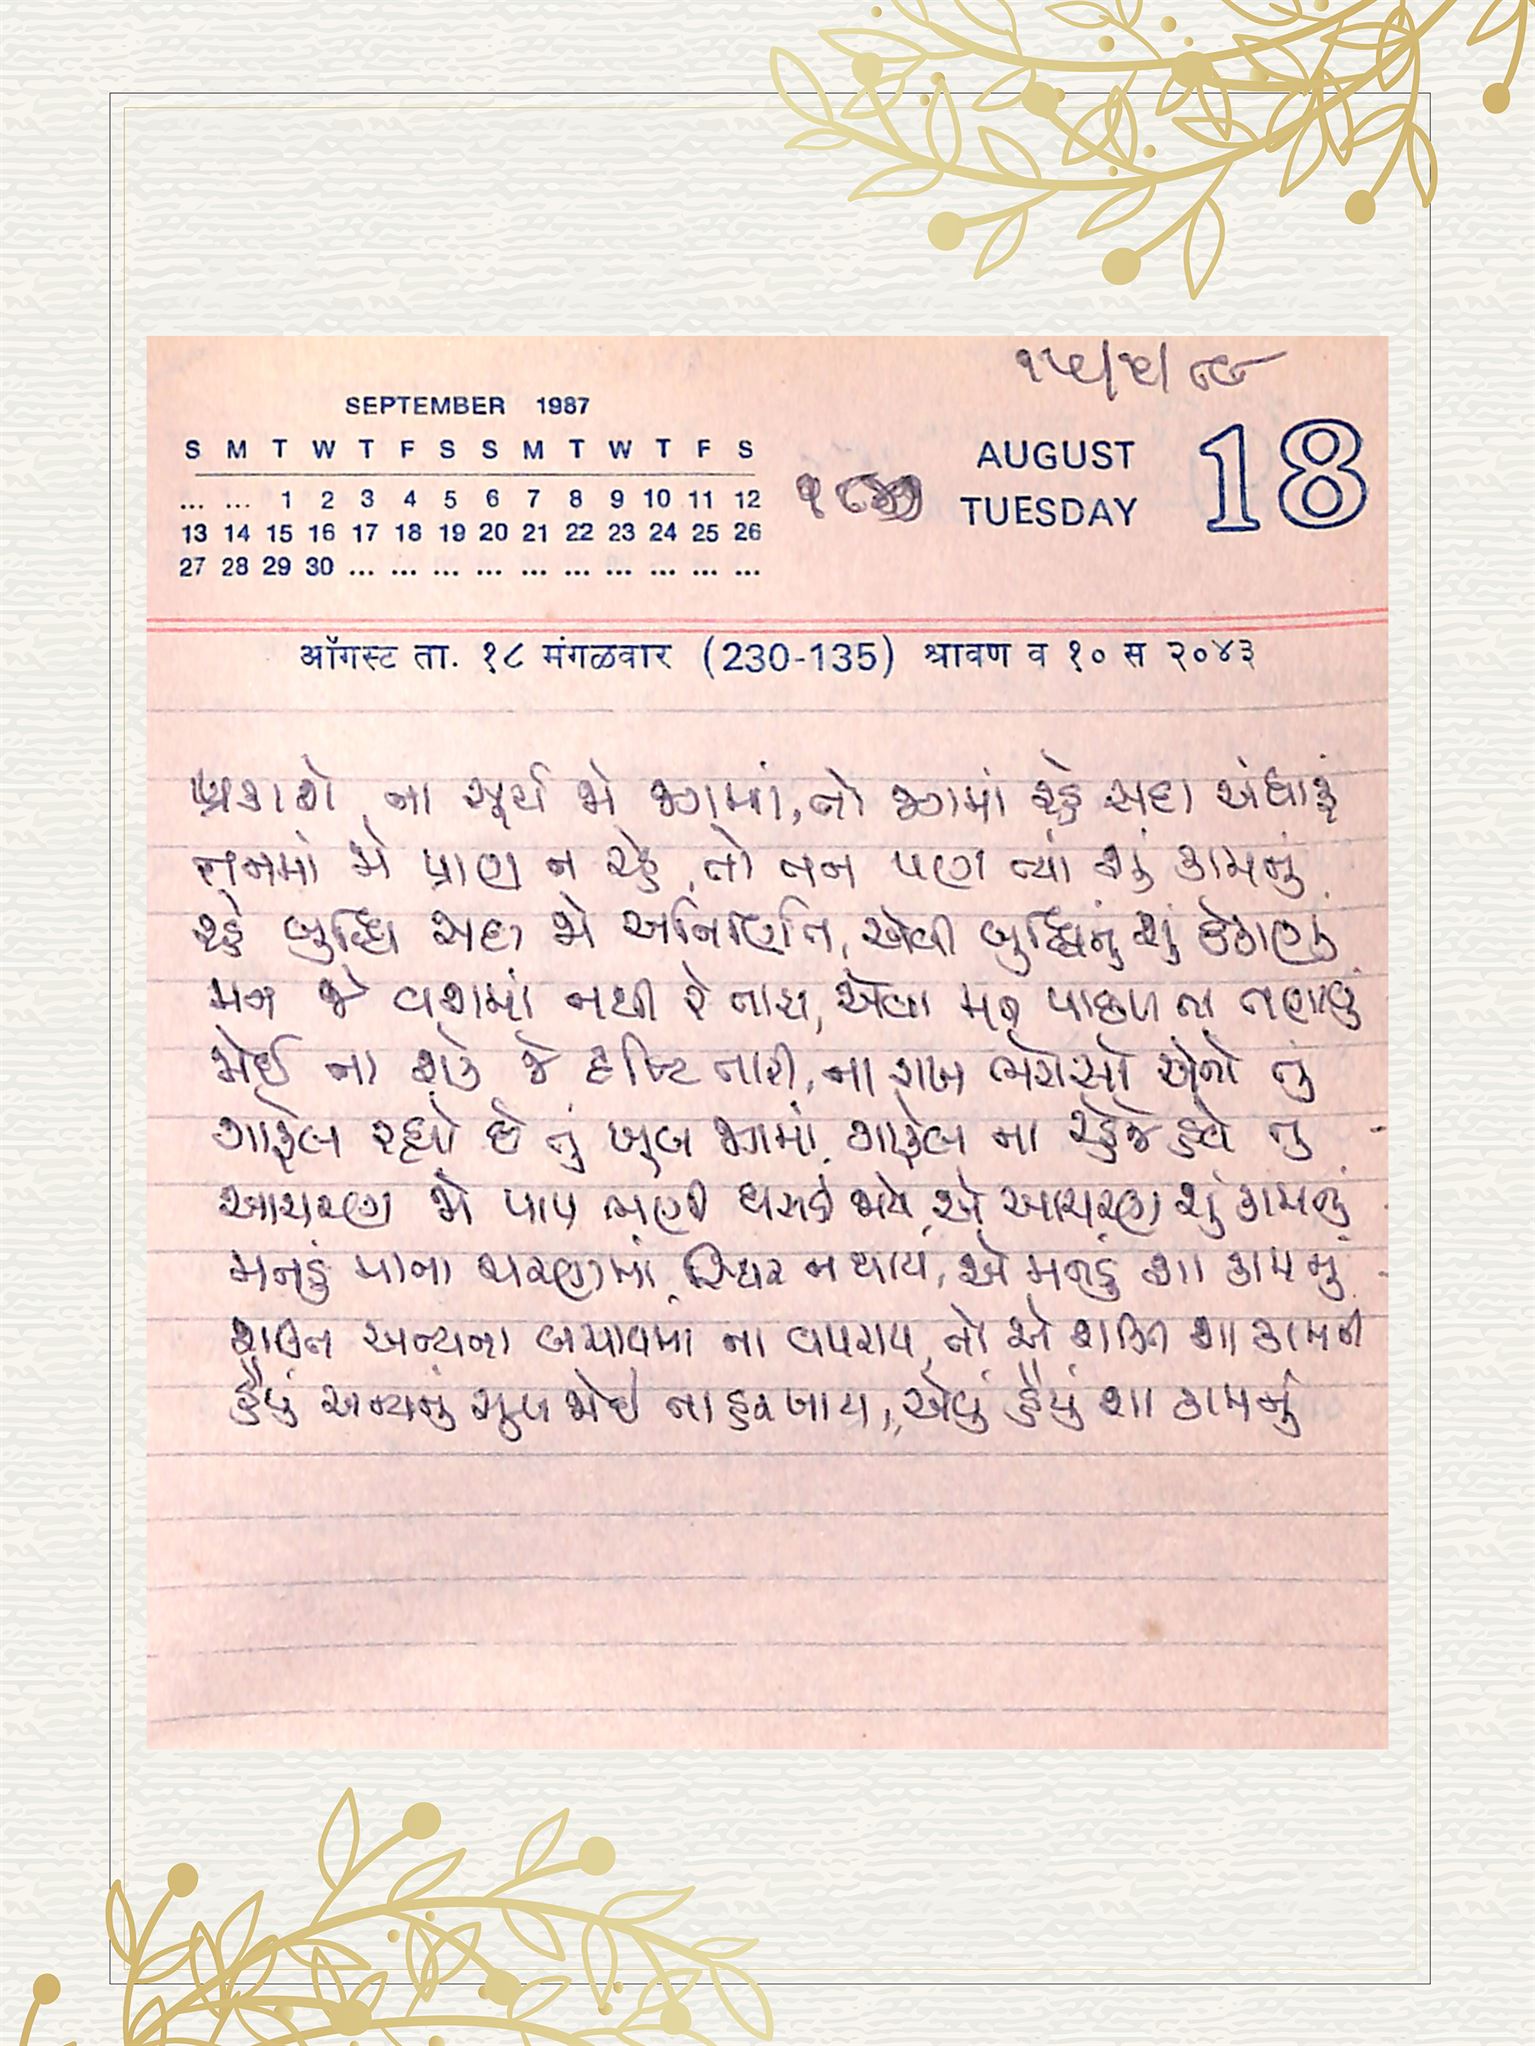 SEPTEMBER 1987
S M T W T F S S M T W T F S
... ... 1 2 3 4 5 6 7 8 9 10 11 12
13 14 15 16 17 18 19 20 21 22 23 24 25 26
27 28 29 30 ... ... ... ... ... ... ... ... ... ...
AUGUST
TUESDAY
18
ऑगस्ट ता. १८ मंगळवार (230-135) श्रावण व १० स २०४३
પ્રકાશે ના સૂર્ય જો જગમાં, તો જગમાં રહે સદા અંધારૂં
તનમાં જો પ્રાણ ન રહે, તો તન પણ ત્યાં શું કામનું
રહે બુદ્ધિ સદા જો અનિર્ણિત, એવી બુદ્ધિનું શું ઠેકાણું
મન જે વશમાં નથી રે તારા, એવા મન પાછળ ના તણાવું
જોઈ ના શકે જે દૃષ્ટિ તારી, ના રાખ ભરોસો એનો તું
ગાફેલ રહ્યો છે તું ખૂબ જગમાં, ગાફેલ ના રહેજે હવે તું
આચરણ જો પાપ ભણી ઘસડી જાયે, એ આચરણ શું કામનું
મનડું માના ચરણમાં સ્થિર ન થાય, એ મનડું શા કામનું
શક્તિ અન્યના બચાવમાં ના વપરાય, તો એ શક્તિ શા કામની
હૈયું અન્યનું દુઃખ જોઈ ના દ્રવી જાય, એવું હૈયું શા કામનું